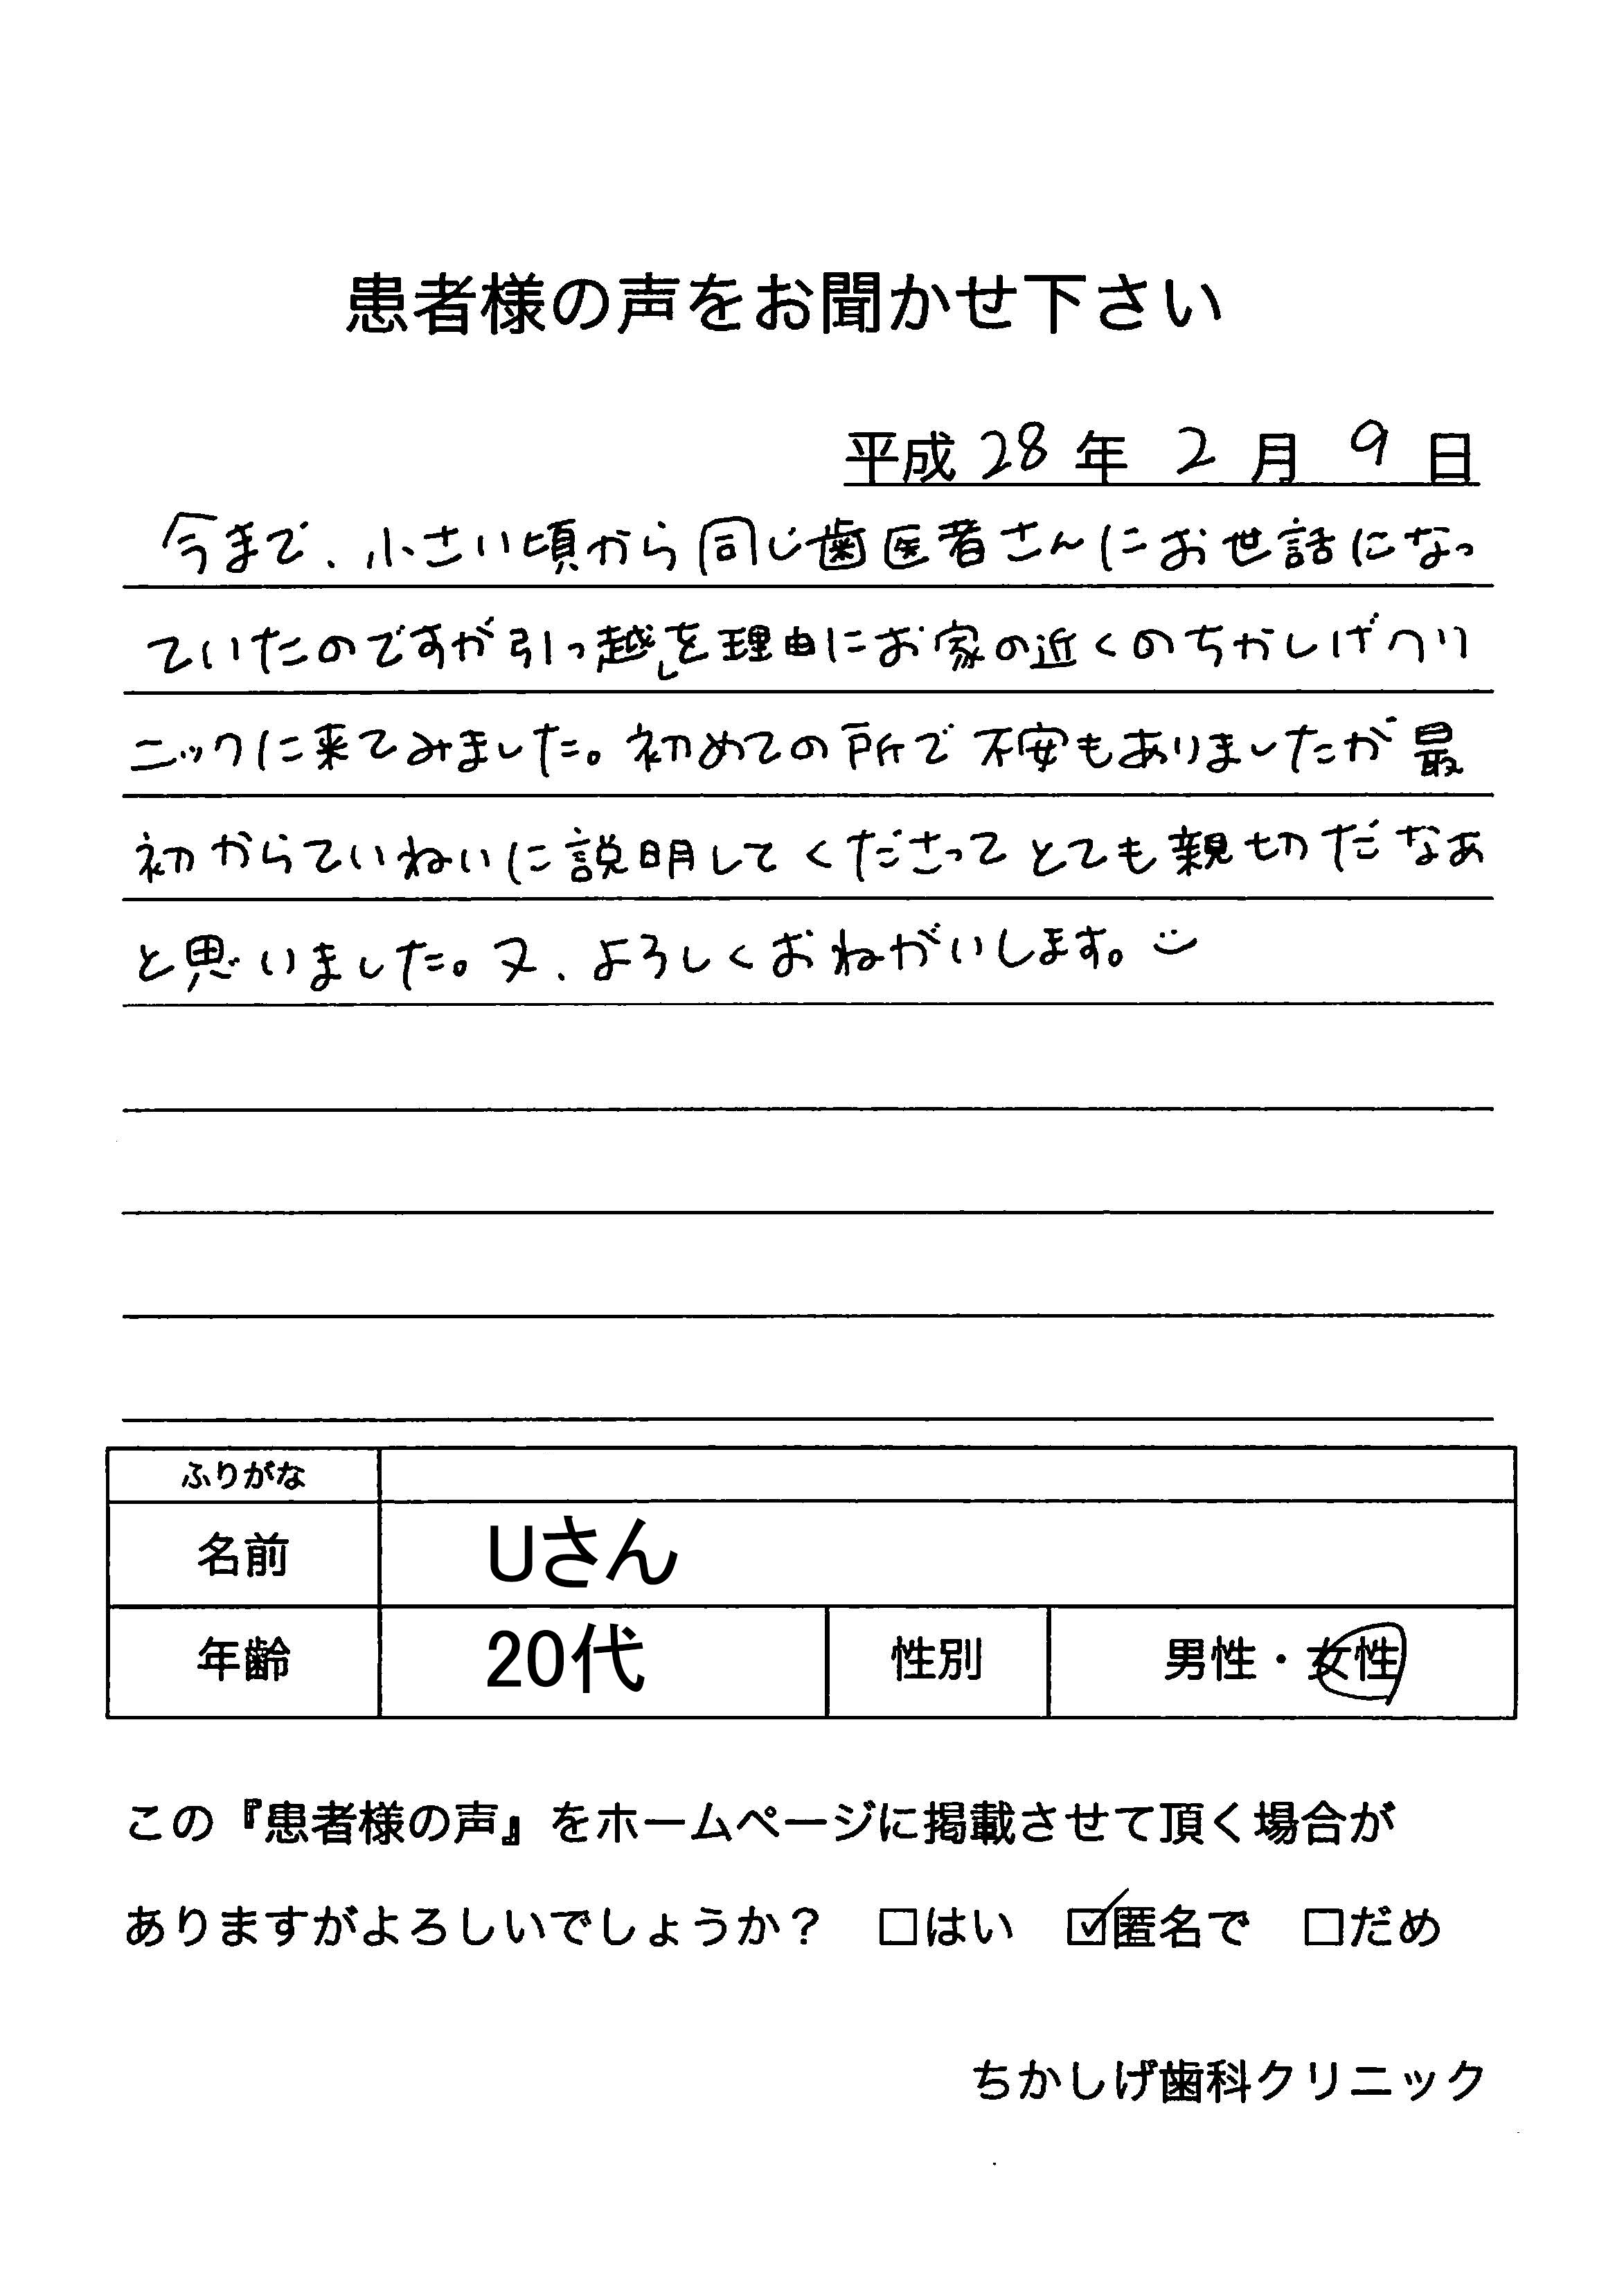 患者様の声をお聞かせ下さい
平成 28 年 2 月 9 日
今まで、小さい頃から同じ歯医者さんにお世話になっ
ていたのですが引っ越しを理由にお家の近くのちかしげクリ
ニックに来てみました。初めての所で不安もありましたが最
初からていねいに説明してくださってとても親切だなぁ
と思いました。又、よろしくおねがいします。
ふりがな
名前 Uさん
年齢 20代 性別 男性・女性
この『患者様の声』をホームページに掲載させて頂く場合が
ありますがよろしいでしょうか？ □はい ☑匿名で □だめ
ちかしげ歯科クリニック